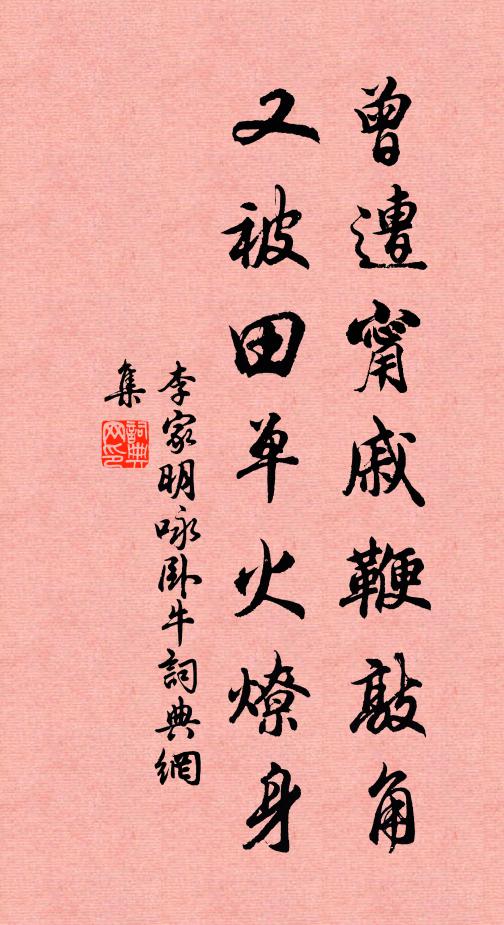 曾遭甯戚鞭敲角
又被田单火燎身
李家明咏卧牛詞典網
集
詞典网印